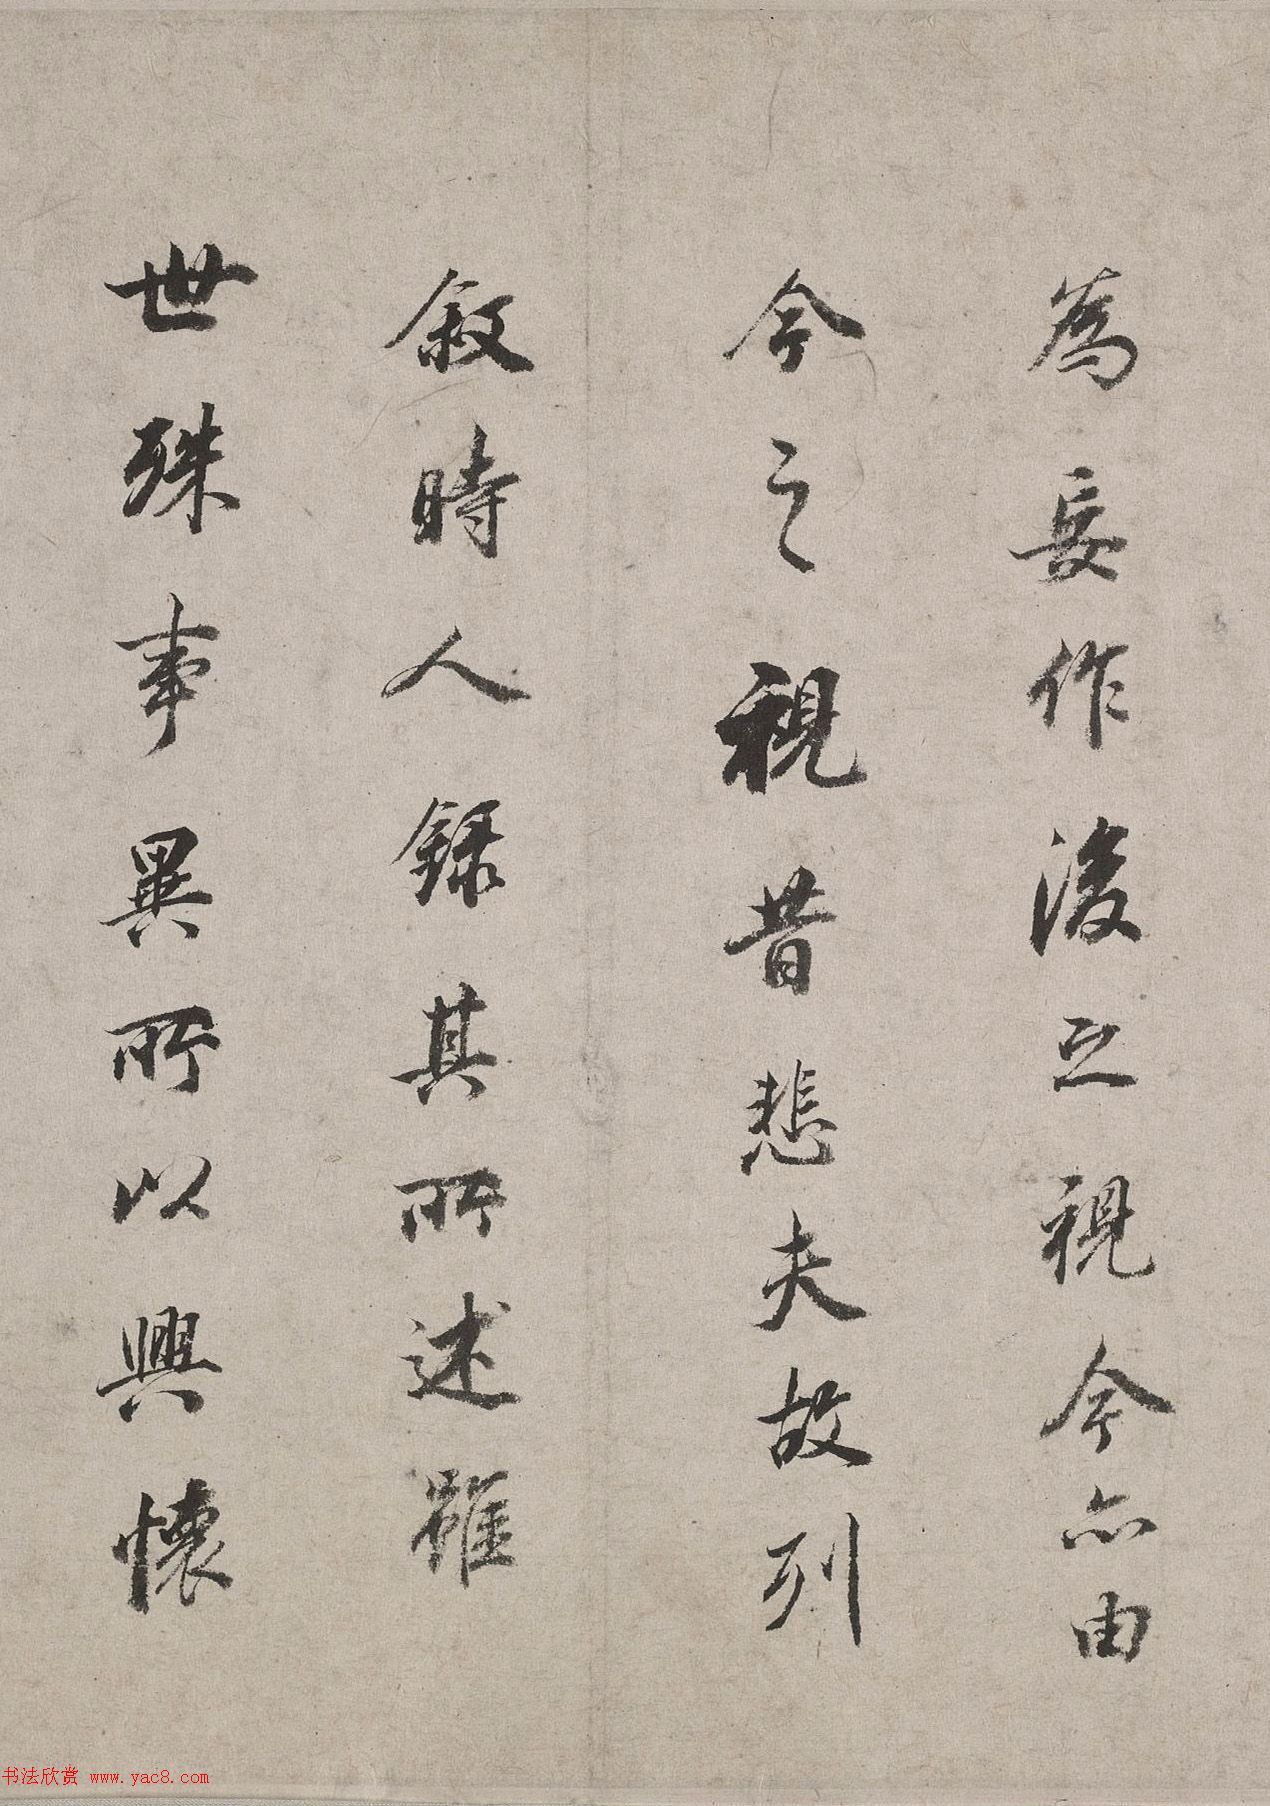 為妄作後之視今亦由
今之視昔悲夫故列
敘時人錄其所述雖
世殊事異所以興懷
书法欣赏 www.yac8.com